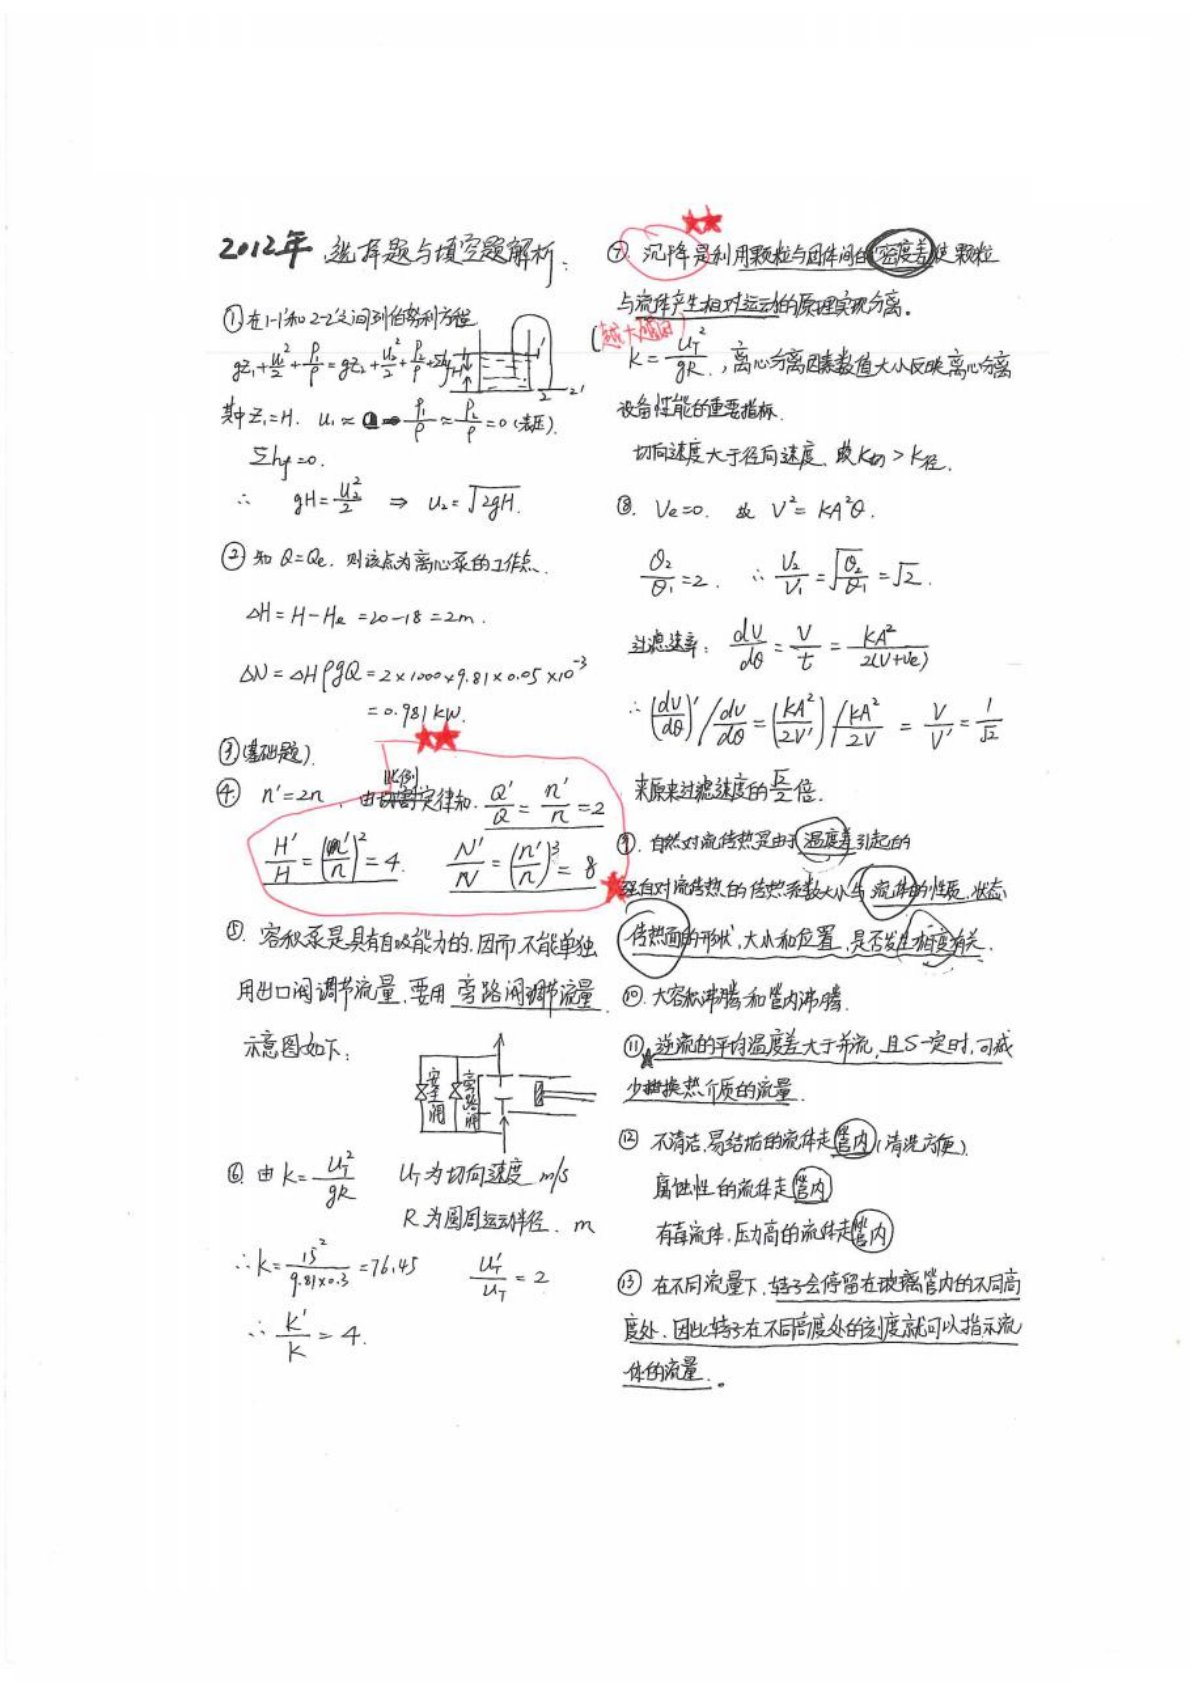 2012年 选择题与填空题解析：
① 在1-1'和2-2'之间列伯努利方程
gZ₁+u₁²/2+P₁/ρ=gZ₂+u₂²/2+P₂/ρ+Σhf
H
1'
2 2'
其中Z₁=H. u₁≈0 P₁/ρ≈P₂/ρ=0(表压).
Σhf=0.
∴ gH=u₂²/2 ⇒ u₂=√2gH.
② 知 Q=Qe. 则该点为离心泵的工作点.
ΔH=H-He=20-18=2m.
ΔN=ΔHρgQ=2×1000×9.81×0.05×10⁻³
=0.981kW.
③(基础题).
④ n'=2n, 由比例定律知. Q'/Q=n'/n=2
H'/H=(n'/n)²=4. N'/N=(n'/n)³=8
⑤. 容积泵是具有自吸能力的,因而不能单独
用出口阀调节流量,要用 旁路阀调节流量.
示意图如下:
安全阀
旁路阀
⑥. 由 k=u_T²/gR u_T为切向速度 m/s
R为圆周运动半径. m
∴k=15²/9.81×0.3=76.45 u_T'/u_T=2
∴ k'/k=4.
⑦. 沉降是利用颗粒与固体间的密度差使颗粒
与流体产生相对运动的原理实现分离。
(越大越好)
k=u_T²/gR., 离心分离因素数值大小反映离心分离
设备性能的重要指标.
切向速度大于径向速度、故k切>k径.
⑧. Ve=0. 故 V²=KA²θ.
θ₂/θ₁=2. ∴V₂/V₁=√θ₂/θ₁=√2.
过滤速率: dV/dθ=V/t=KA²/2(V+Ve)
∴(dV/dθ)'/dV/dθ=(KA²/2V')/KA²/2V=V/V'=1/√2
来原来过滤速度的√2/2倍.
⑨. 自然对流传热是由于温度差引起的
自对流传热的传热系数大小与流体的性质.状态
传热面的形状,大小和位置,是否发生相变有关.
⑩. 大容积沸腾和管内沸腾.
⑪ 逆流的平均温度差大于并流,且S一定时,可减
少换热介质的流量.
⑫ 不清洁,易结垢的流体走管内(清洗方便)
腐蚀性的流体走管内
有毒流体,压力高的流体走管内
⑬ 在不同流量下,转子会停留在玻璃管内的不同高
度处.因此转子在不同高度处的刻度就可以指示流
体的流量.。